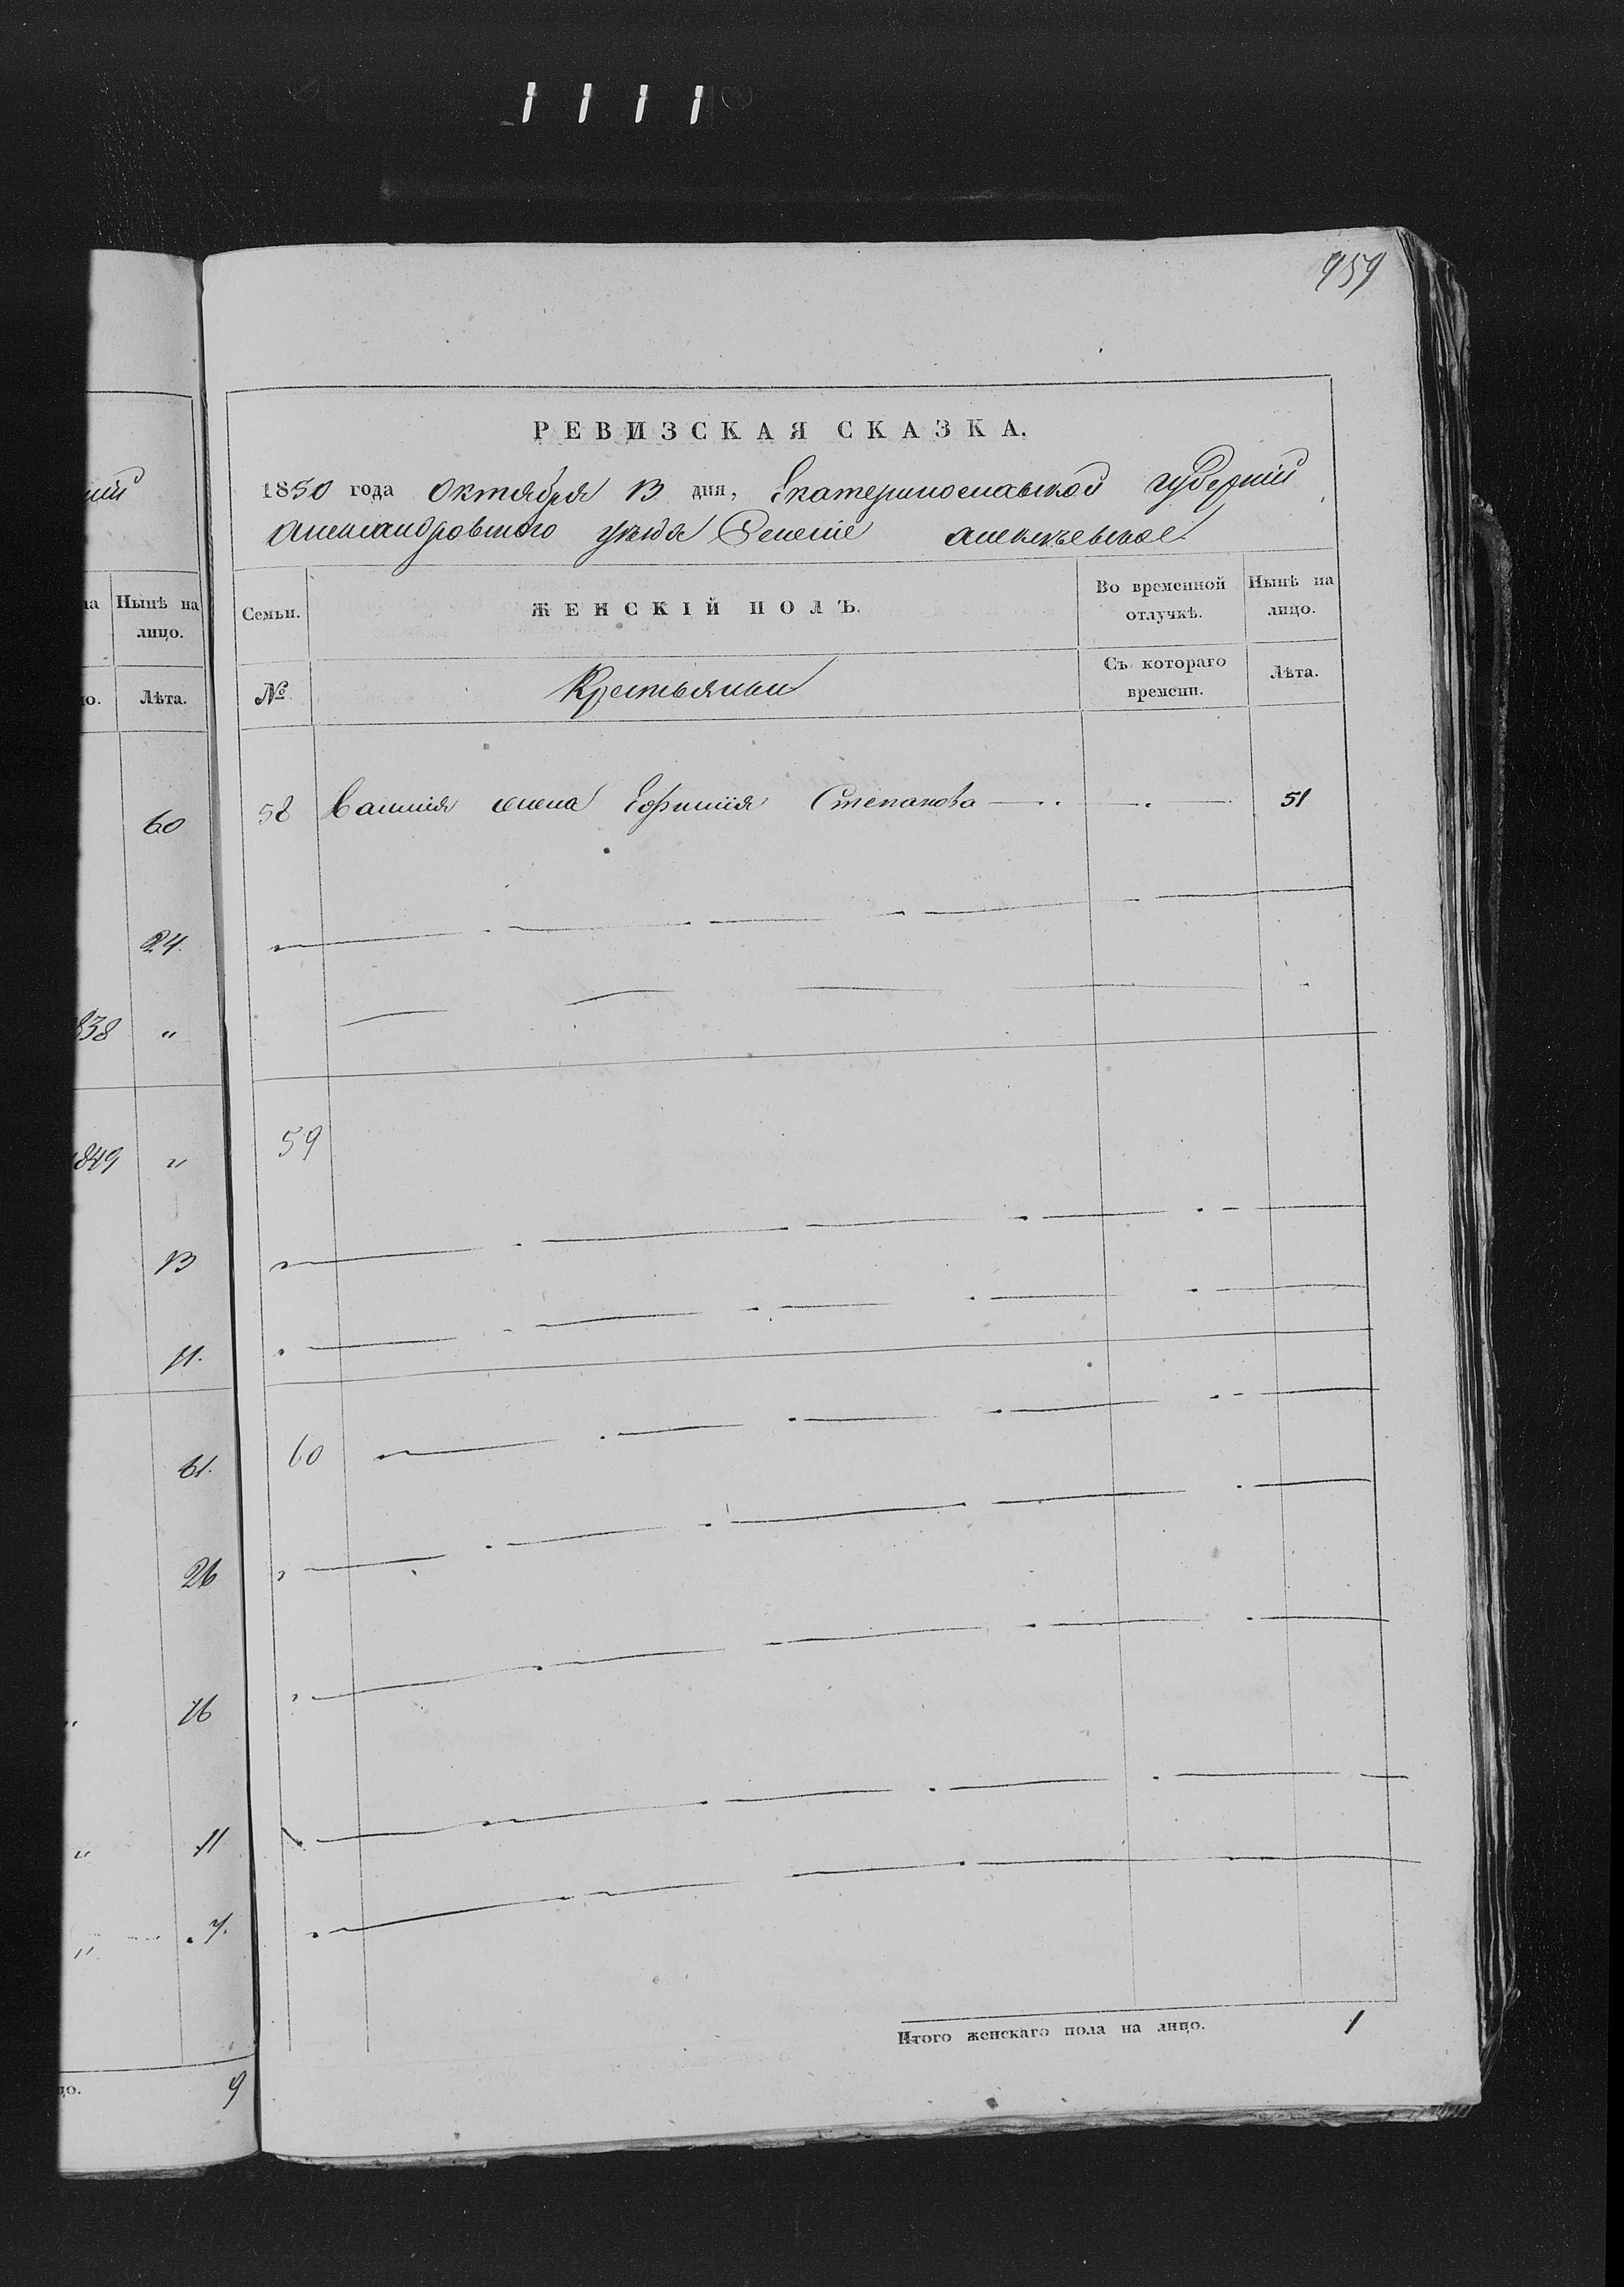 959
РЕВИЗСКАЯ СКАЗКА.
1850 года Октября 13 дня, Екатеринославской губерніи
Александровского уезда Селеніе Алексѣевское
Семьи. ЖЕНСКІЙ ПОЛЪ. Во временной отлучкѣ. Нынѣ на лицо.
№ Крестьянки Съ котораго времени. Лѣта.
58 жена Ефимія Степанова 51
59
60
Итого женскаго пола на лицо. 1
Нынѣ на
лицо.
Лѣта.
60
24.
838 „
849 „
13
11.
61.
26
16
„ 11
„ 7.
9